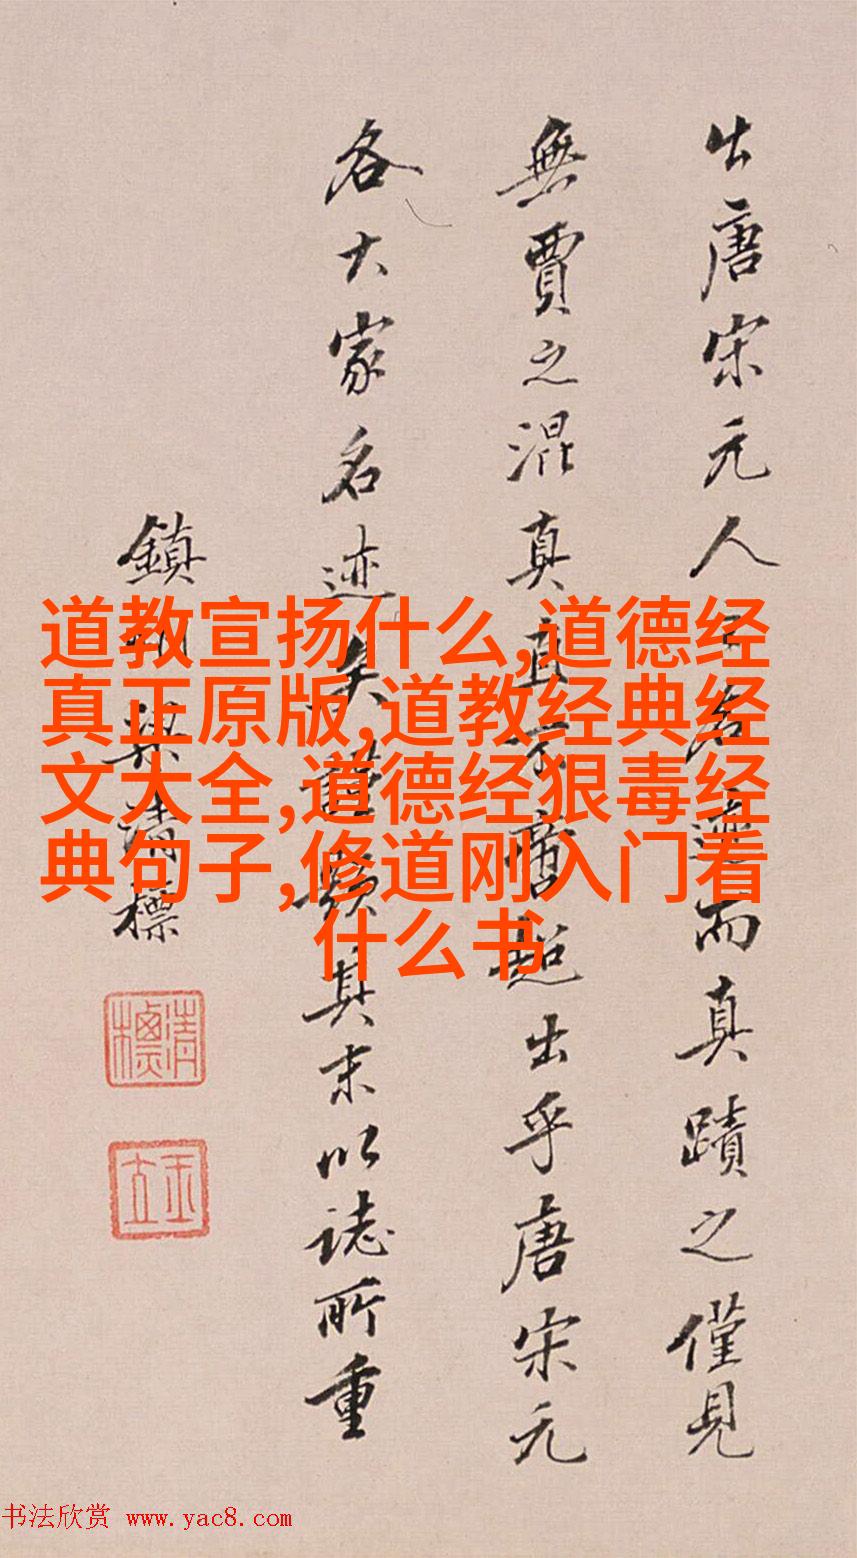 出唐宋元人名迹而真蹟之僅見
無賈之混真直不啻超出乎唐宋元
各大家名迹矣謹贅其末以誌所重
鎮州梁清標
清標
玉立
道教宣扬什么,道德经
真正原版,道教经典经
文大全,道德经狠毒经
典句子,修道刚入门看
什么书
书法欣赏 www.yac8.com